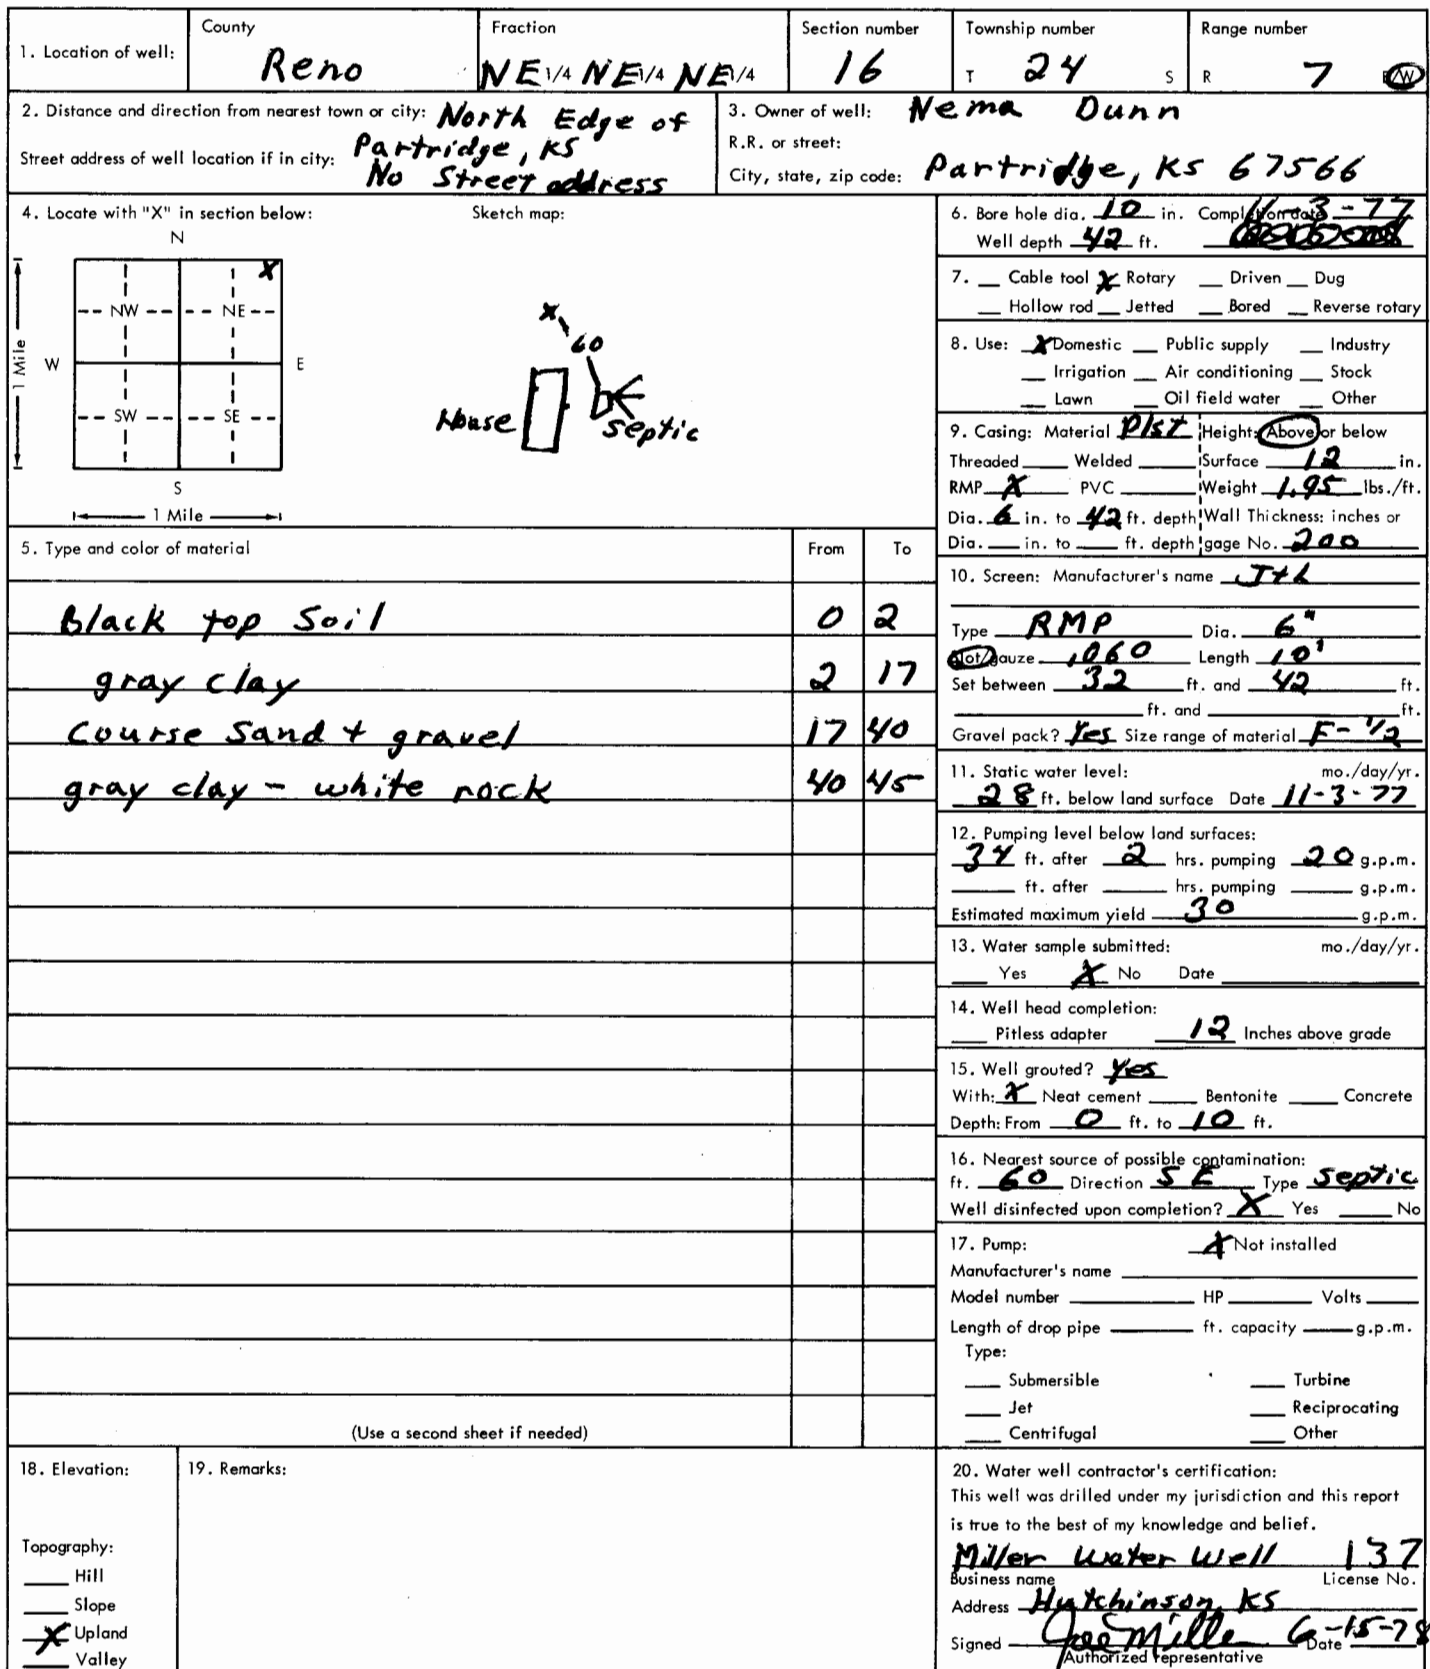 1. Location of well: County Reno Fraction NE 1/4 NE 1/4 NE 1/4 Section number 16 Township number T 24 S Range number R 7 E/W
2. Distance and direction from nearest town or city: North Edge of
Partridge, KS
Street address of well location if in city: No Street address
3. Owner of well: Nema Dunn
R.R. or street:
City, state, zip code: Partridge, KS 67566
4. Locate with "X" in section below: Sketch map:
N
X
NW NE
W E
SW SE
S
1 Mile
1 Mile
X
60
House
septic
5. Type and color of material From To
Black top soil 0 2
gray clay 2 17
Course sand + gravel 17 40
gray clay - white rock 40 45
(Use a second sheet if needed)
6. Bore hole dia. 10 in. Completion date 11-3-77
Well depth 42 ft.
7. Cable tool X Rotary Driven Dug
Hollow rod Jetted Bored Reverse rotary
8. Use: X Domestic Public supply Industry
Irrigation Air conditioning Stock
Lawn Oil field water Other
9. Casing: Material Plst Height: Above or below
Threaded Welded Surface 12 in.
RMP X PVC Weight 1.95 lbs./ft.
Dia. 6 in. to 42 ft. depth Wall Thickness: inches or
Dia. in. to ft. depth gage No. 200
10. Screen: Manufacturer's name J+L
Type RMP Dia. 6"
Slot/gauze .060 Length 10'
Set between 32 ft. and 42 ft.
ft. and ft.
Gravel pack? Yes Size range of material F-1/2
11. Static water level: mo./day/yr.
28 ft. below land surface Date 11-3-77
12. Pumping level below land surfaces:
34 ft. after 2 hrs. pumping 20 g.p.m.
ft. after hrs. pumping g.p.m.
Estimated maximum yield 30 g.p.m.
13. Water sample submitted: mo./day/yr.
Yes X No Date
14. Well head completion:
Pitless adapter 12 Inches above grade
15. Well grouted? Yes
With: X Neat cement Bentonite Concrete
Depth: From 0 ft. to 10 ft.
16. Nearest source of possible contamination:
ft. 60 Direction SE Type septic
Well disinfected upon completion? X Yes No
17. Pump: X Not installed
Manufacturer's name
Model number HP Volts
Length of drop pipe ft. capacity g.p.m.
Type:
Submersible Turbine
Jet Reciprocating
Centrifugal Other
18. Elevation:
Topography:
Hill
Slope
X Upland
Valley
19. Remarks:
20. Water well contractor's certification:
This well was drilled under my jurisdiction and this report
is true to the best of my knowledge and belief.
Miller Water Well 137
Business name License No.
Address Hutchinson, KS
Signed Joe Miller Date 6-15-78
Authorized representative